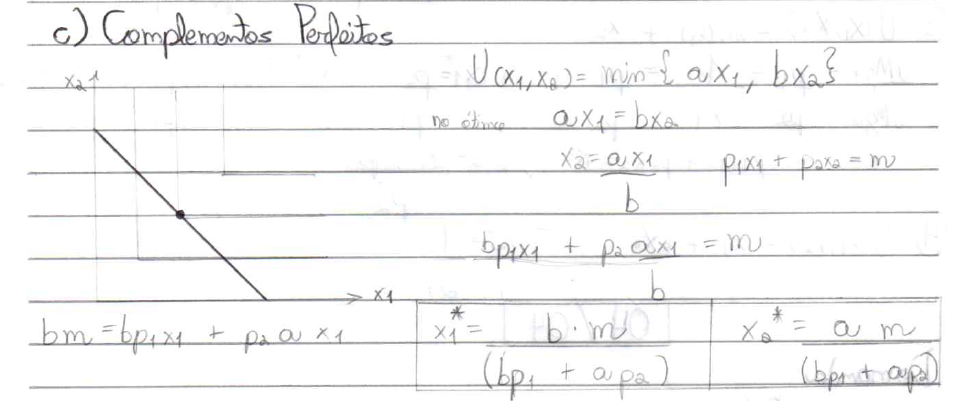 c) Complementos Perfeitos
x2
U(x1,x2) = min{ax1, bx2}
no ótimo ax1 = bx2
x2 = ax1/b p1x1 + p2x2 = m
bp1x1 + p2 ax1/b = m
x1
bm = bp1x1 + p2 a x1 x1* = b·m/(bp1 + ap2) x2* = a m/(bp1 + ap2)